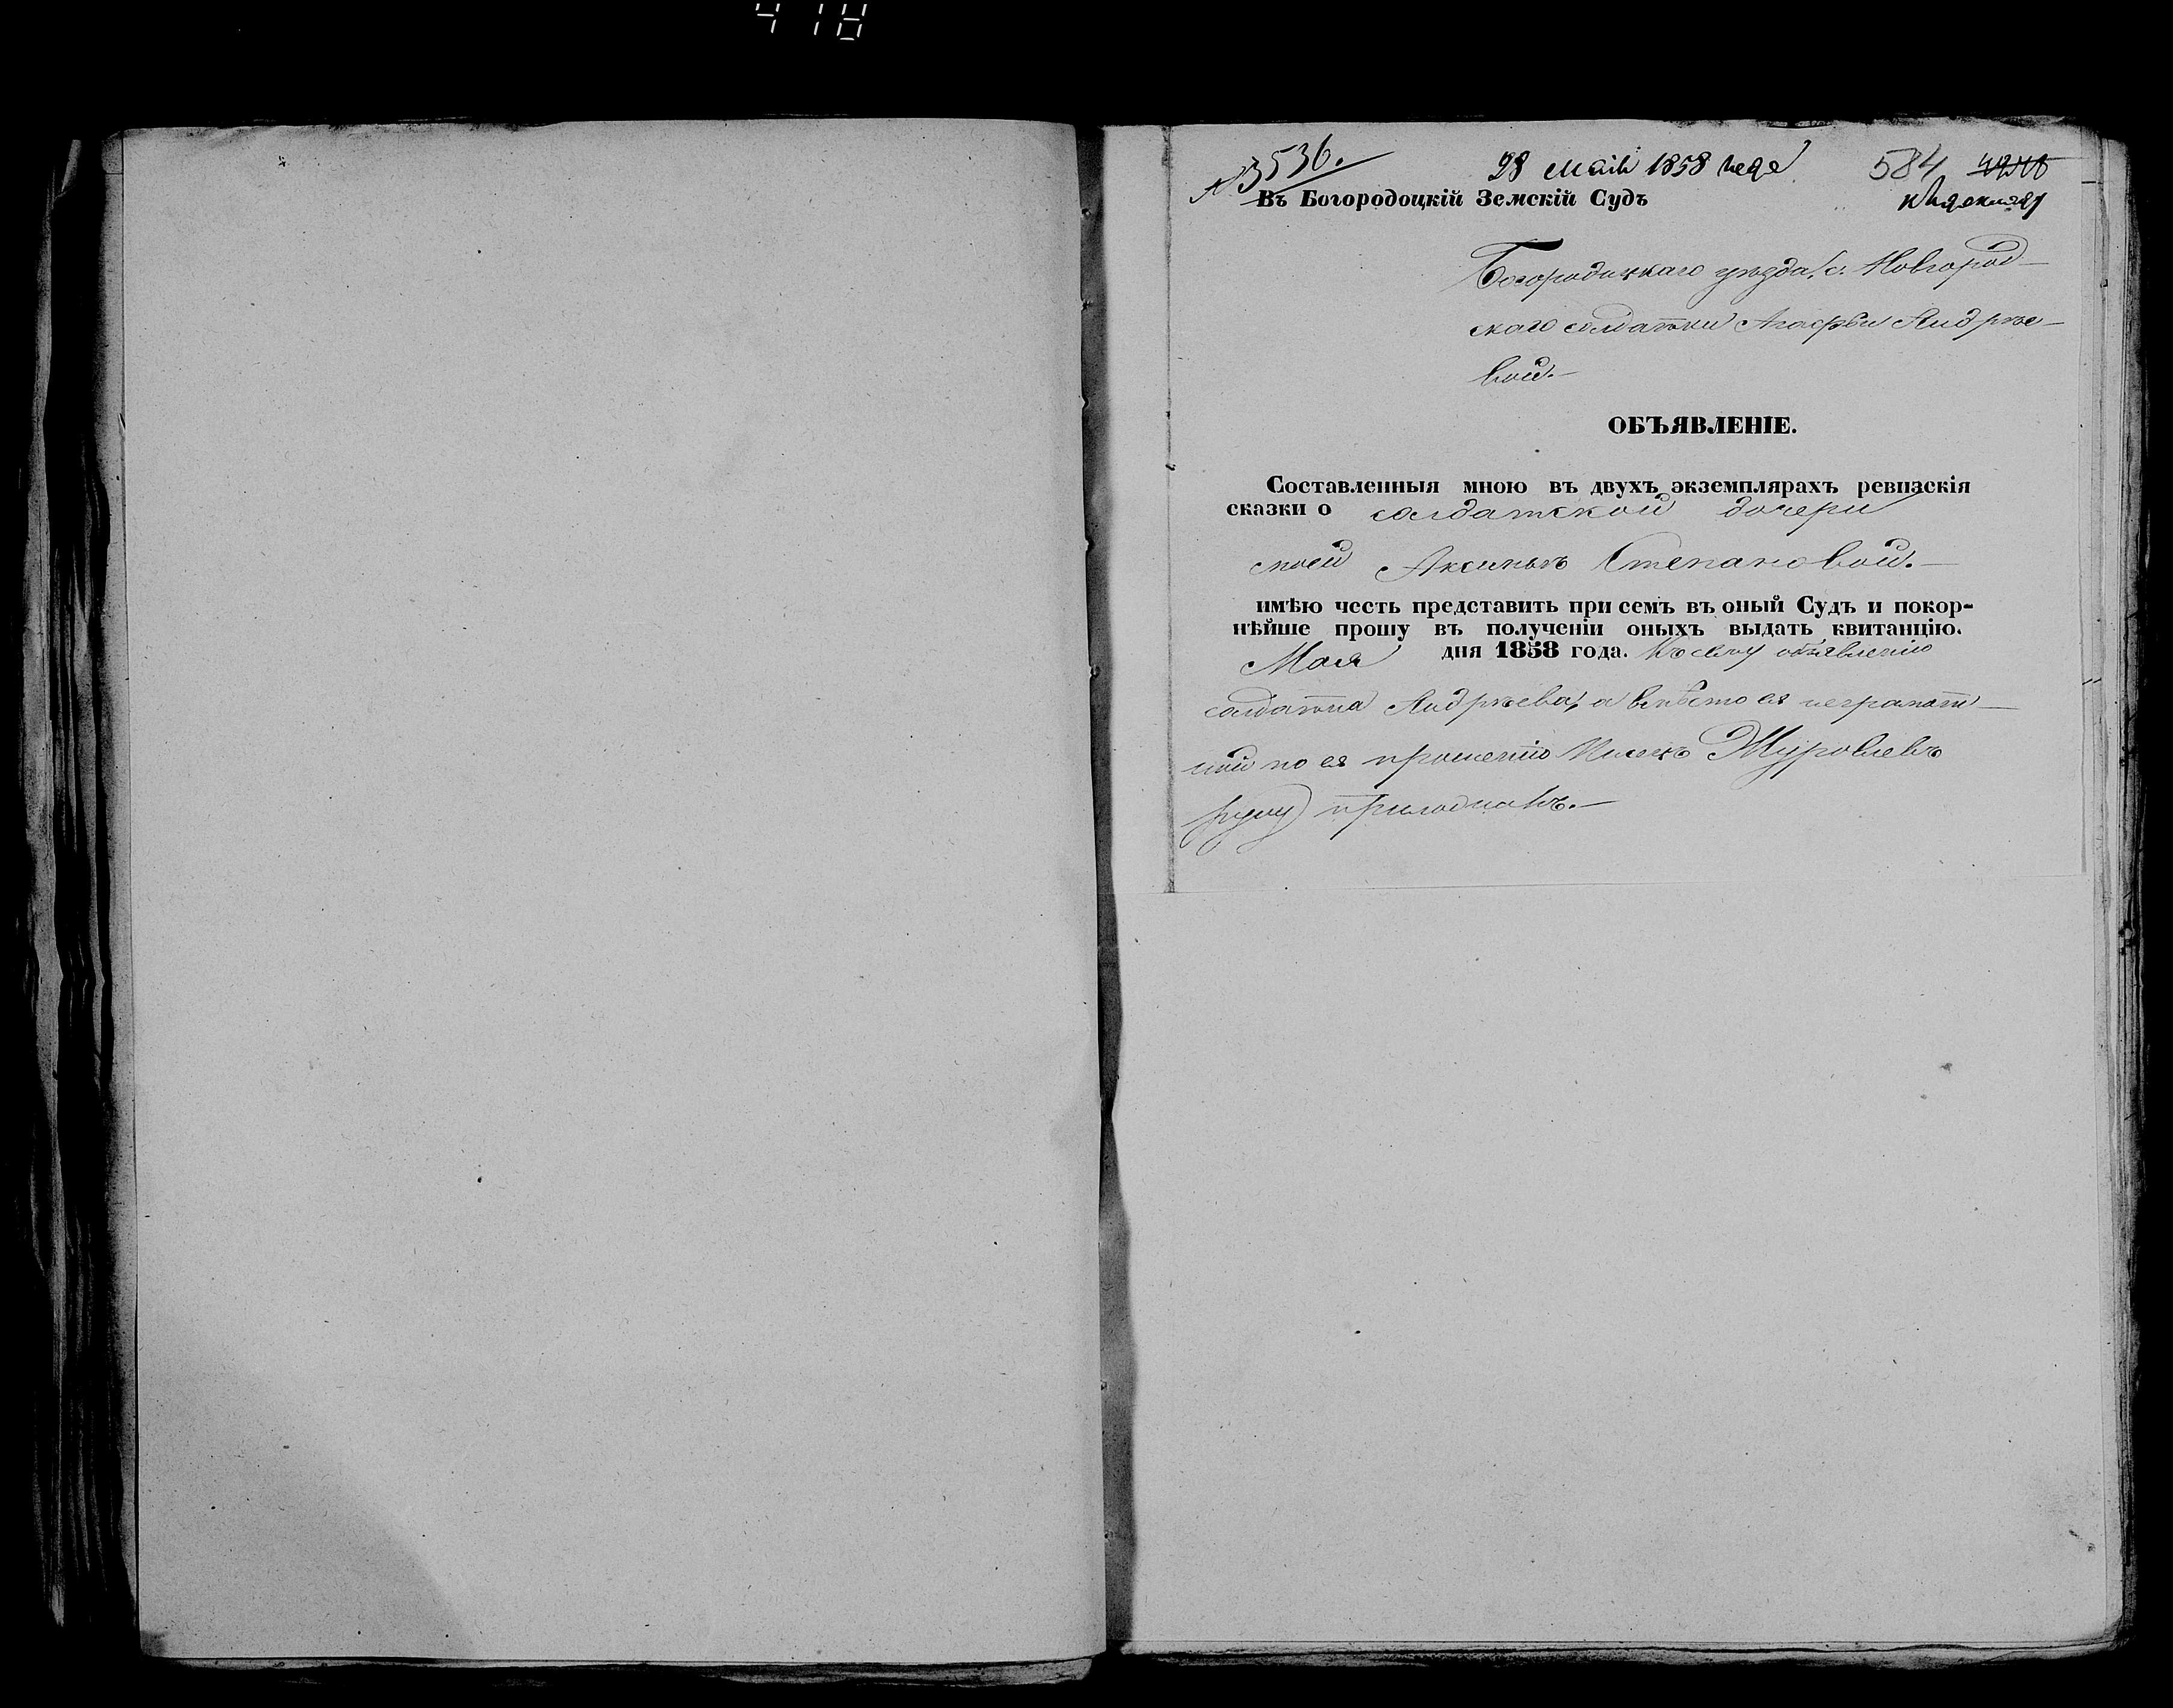 418
№ 3536.
28 маія 1858 года
584
Въ Богородоцкій Земскій Судъ
Богородицкаго уѣзда, с. Новгород-
скаго солдатки Агафьи Андрѣе-
вой.-
ОБЪЯВЛЕНІЕ.
Составленныя мною въ двухъ экземплярахъ ревизскія
сказки о солдатской дочери
моей Аксиньѣ Степановой.-
имѣю честь представить при семъ въ оный Судъ и покор-
нѣйше прошу въ полученіи оныхъ выдать квитанцію.
Мая дня 1858 года. Къ сему объявленію
солдатка Андрѣева, а вмѣсто ея неграмот-
ной по ея прошенію Писецъ Журавлевъ
руку приложилъ.-